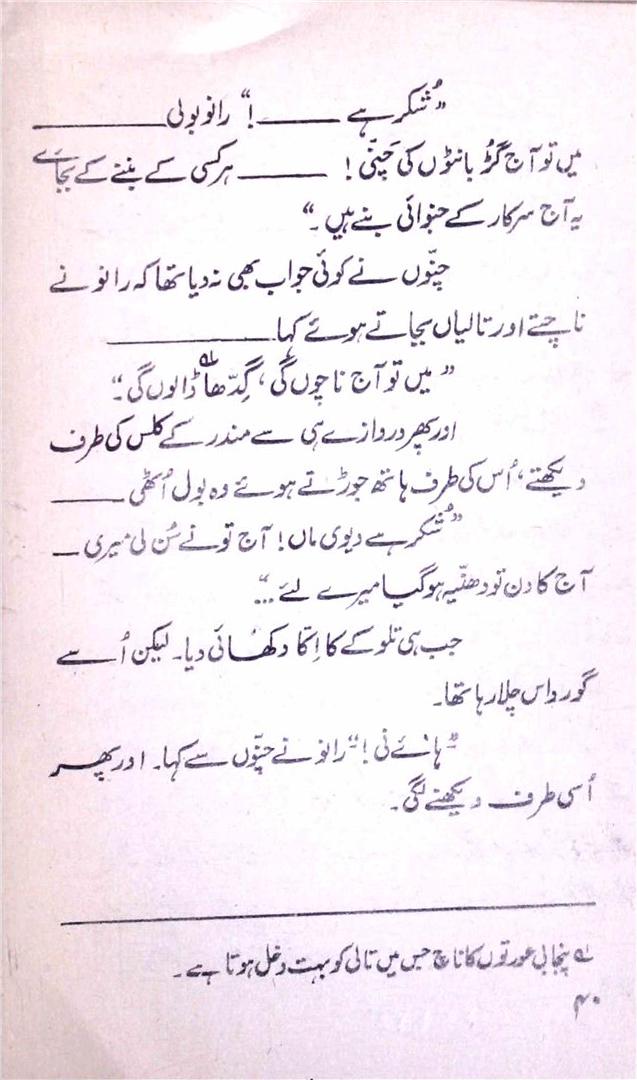 ”شُکر ہے ــــــــ!“ رانو بولی ــــــــ
میں تو آج گڑُ بانٹوں گی چَنّی! ــــــــ ہر کسی کے بننے کے بجائے
یہ آج سرکار کے جنوائی بنے ہیں۔“
چنّوں نے کوئی جواب بھی نہ دیا تھا کہ رانو نے
ناچتے اور تالیاں بجاتے ہوئے کہا ــــــــ
”میں تو آج ناچوں گی، گِدّھا؎۱ ڈالوں گی۔“
اور پھر دروازے ہی سے مندر کے کلس کی طرف
دیکھتے، اُس کی طرف ہاتھ جوڑتے ہوئے وہ بول اُٹھی ــــــــ
”شُکر ہے دیوی ماں! آج تو نے سُن لی میری ــ
آج کا دن تو دھنّیہ ہو گیا میرے لئے ...“
جب ہی تلوکے کا اِکّا دکھائی دیا۔ لیکن اُسے
گورداس چلا رہا تھا۔
”ہائے نی!“ رانو نے چنّوں سے کہا۔ اور پھر
اُسی طرف دیکھنے لگی۔
؎۱ پنجابی عورتوں کا ناچ جس میں تالی کو بہت دخل ہوتا ہے۔
۴۰